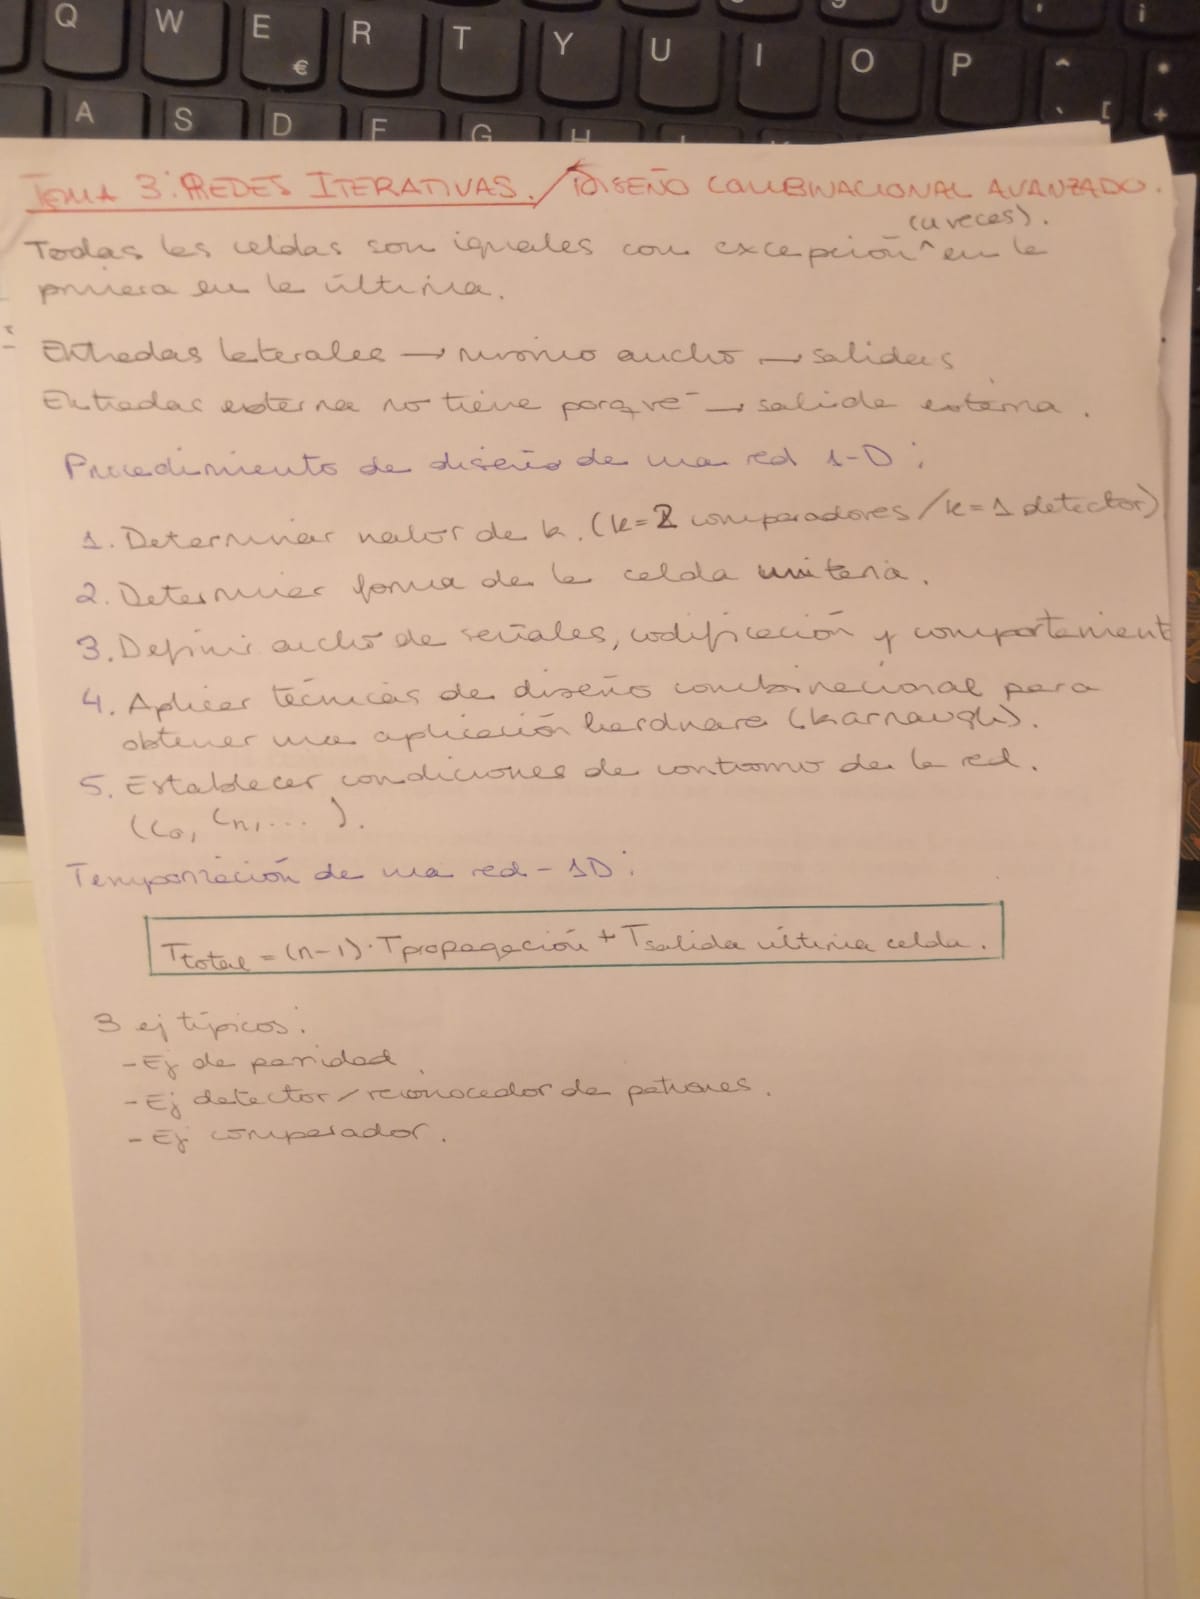 Q W E R T Y U I O P
€
A S D F G H
TEMA 3: REDES ITERATIVAS. / DISEÑO COMBINACIONAL AVANZADO.
(a veces).
Todas las celdas son iguales con excepción ^ en la
primera en la última.
Entradas laterales → mismo ancho → salidas
Entradas externa no tiene porqué → salida externa.
Procedimiento de diseño de una red 1-D:
1. Determinar valor de k. (k=2 comparadores / k=1 detector)
2. Determinar forma de la celda unitaria.
3. Definir ancho de señales, codificación y comportamient
4. Aplicar técnicas de diseño combinacional para
obtener una aplicación hardware (Karnaugh).
5. Establecer condiciones de contorno de la red.
(C0, Cn, ...).
Temporización de una red-1D:
Ttotal = (n-1) · Tpropagación + Tsalida última celda.
3 ej típicos:
- Ej de paridad.
- Ej detector/reconocedor de patrones.
- Ej comparador.